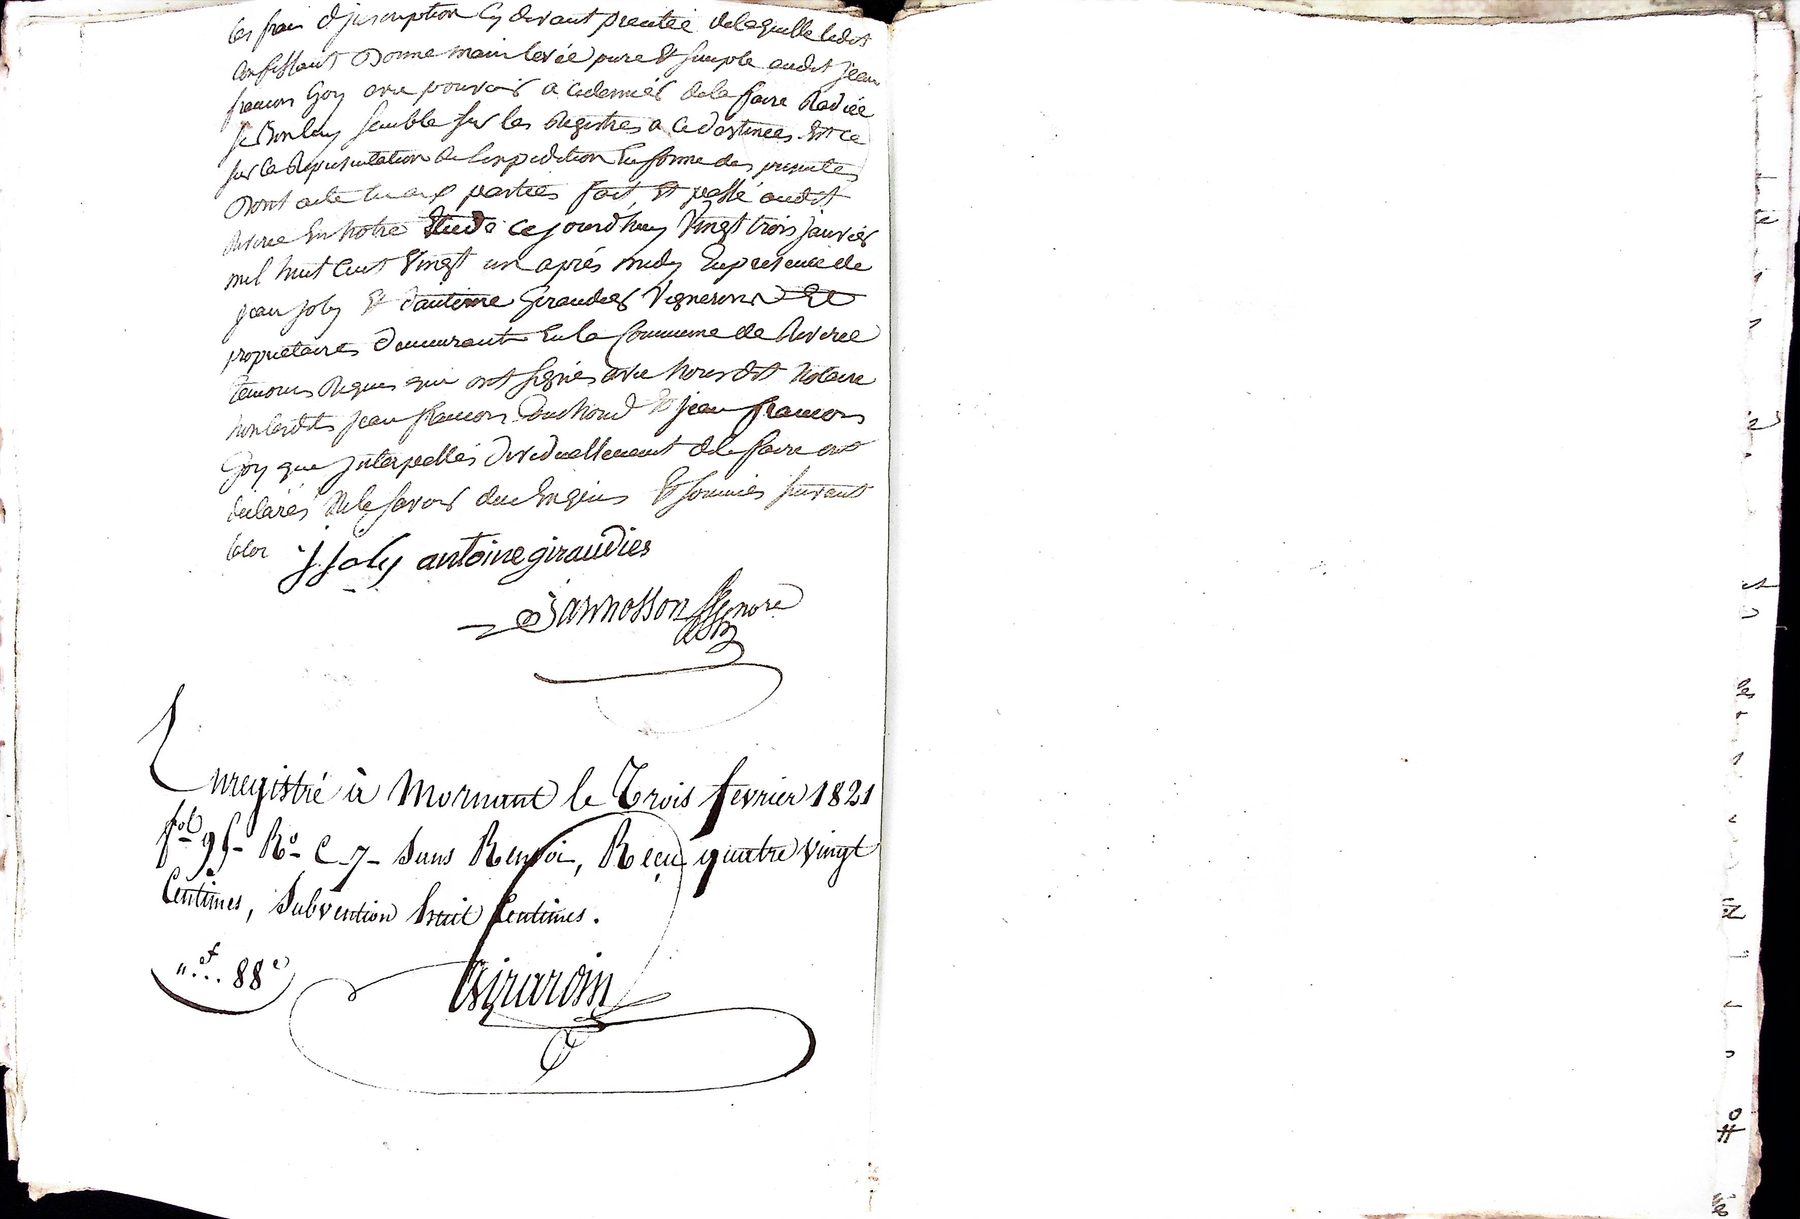 les frais d'jnscription cy devant  delaquelle ledit
Confessant Donne main levée pure et simple audit jean
francois Goy avec pouvoir a cedernier dela faire Radiée
si Bon luy semble sur les Registres a ce destinées. Et ce
sur la Representation de l'expedition En forme des presentes
Dont acte lu aux parties fait, et passé audit
Riverie En notre Etude cejourd'huy Vingt trois janvier
mil huit cent Vingt un après midy En presence de
jean joly et d'antoine Giraudier Vignerons et
proprietaires demeurant En la Commune de Riverie
temoins Requis qui ont signés avec nous dit Notaire
non lesdits jean francois et jean francois
Goy que jnterpellés dividuellement dele faire ont
declarés Nele savoir duement Enquis et sommés suivant
laloi
J Joly antoine giraudier
Jannosson Nore
Enregistré à Mornant le Trois fevrier 1821
fol 95 Ro C 7 Sans Renvoi, Reçu quatre vingt
Centimes, Subvention huit Centimes.
" f.. 88 c
Girardin